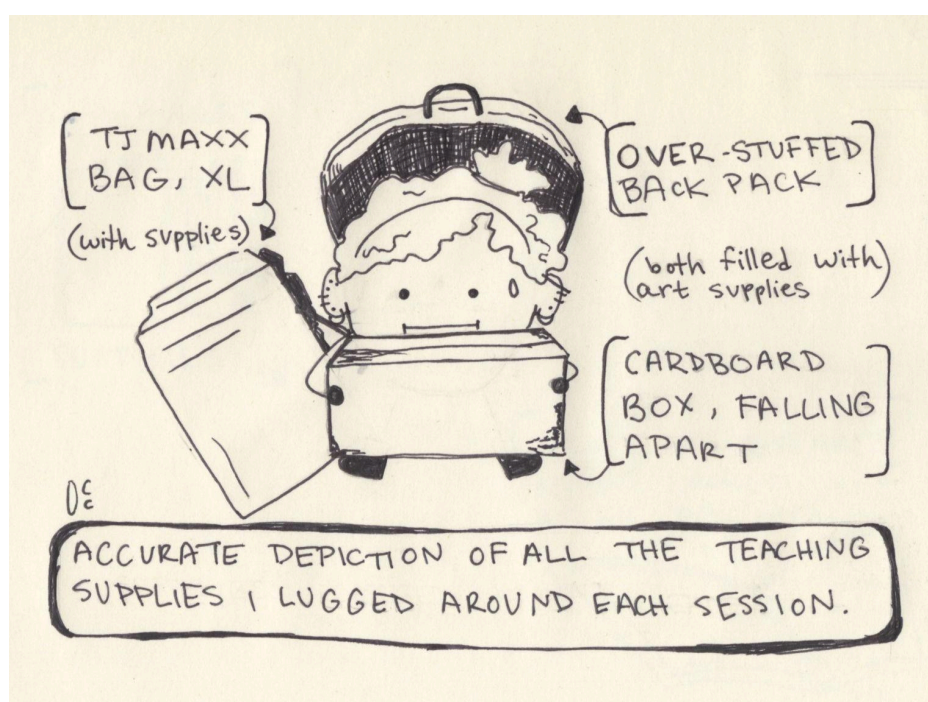 TJ MAXX
BAG, XL
(with supplies)
OVER-STUFFED
BACK PACK
(both filled with)
art supplies
CARDBOARD
BOX, FALLING
APART
ACCURATE DEPICTION OF ALL THE TEACHING
SUPPLIES I LUGGED AROUND EACH SESSION.